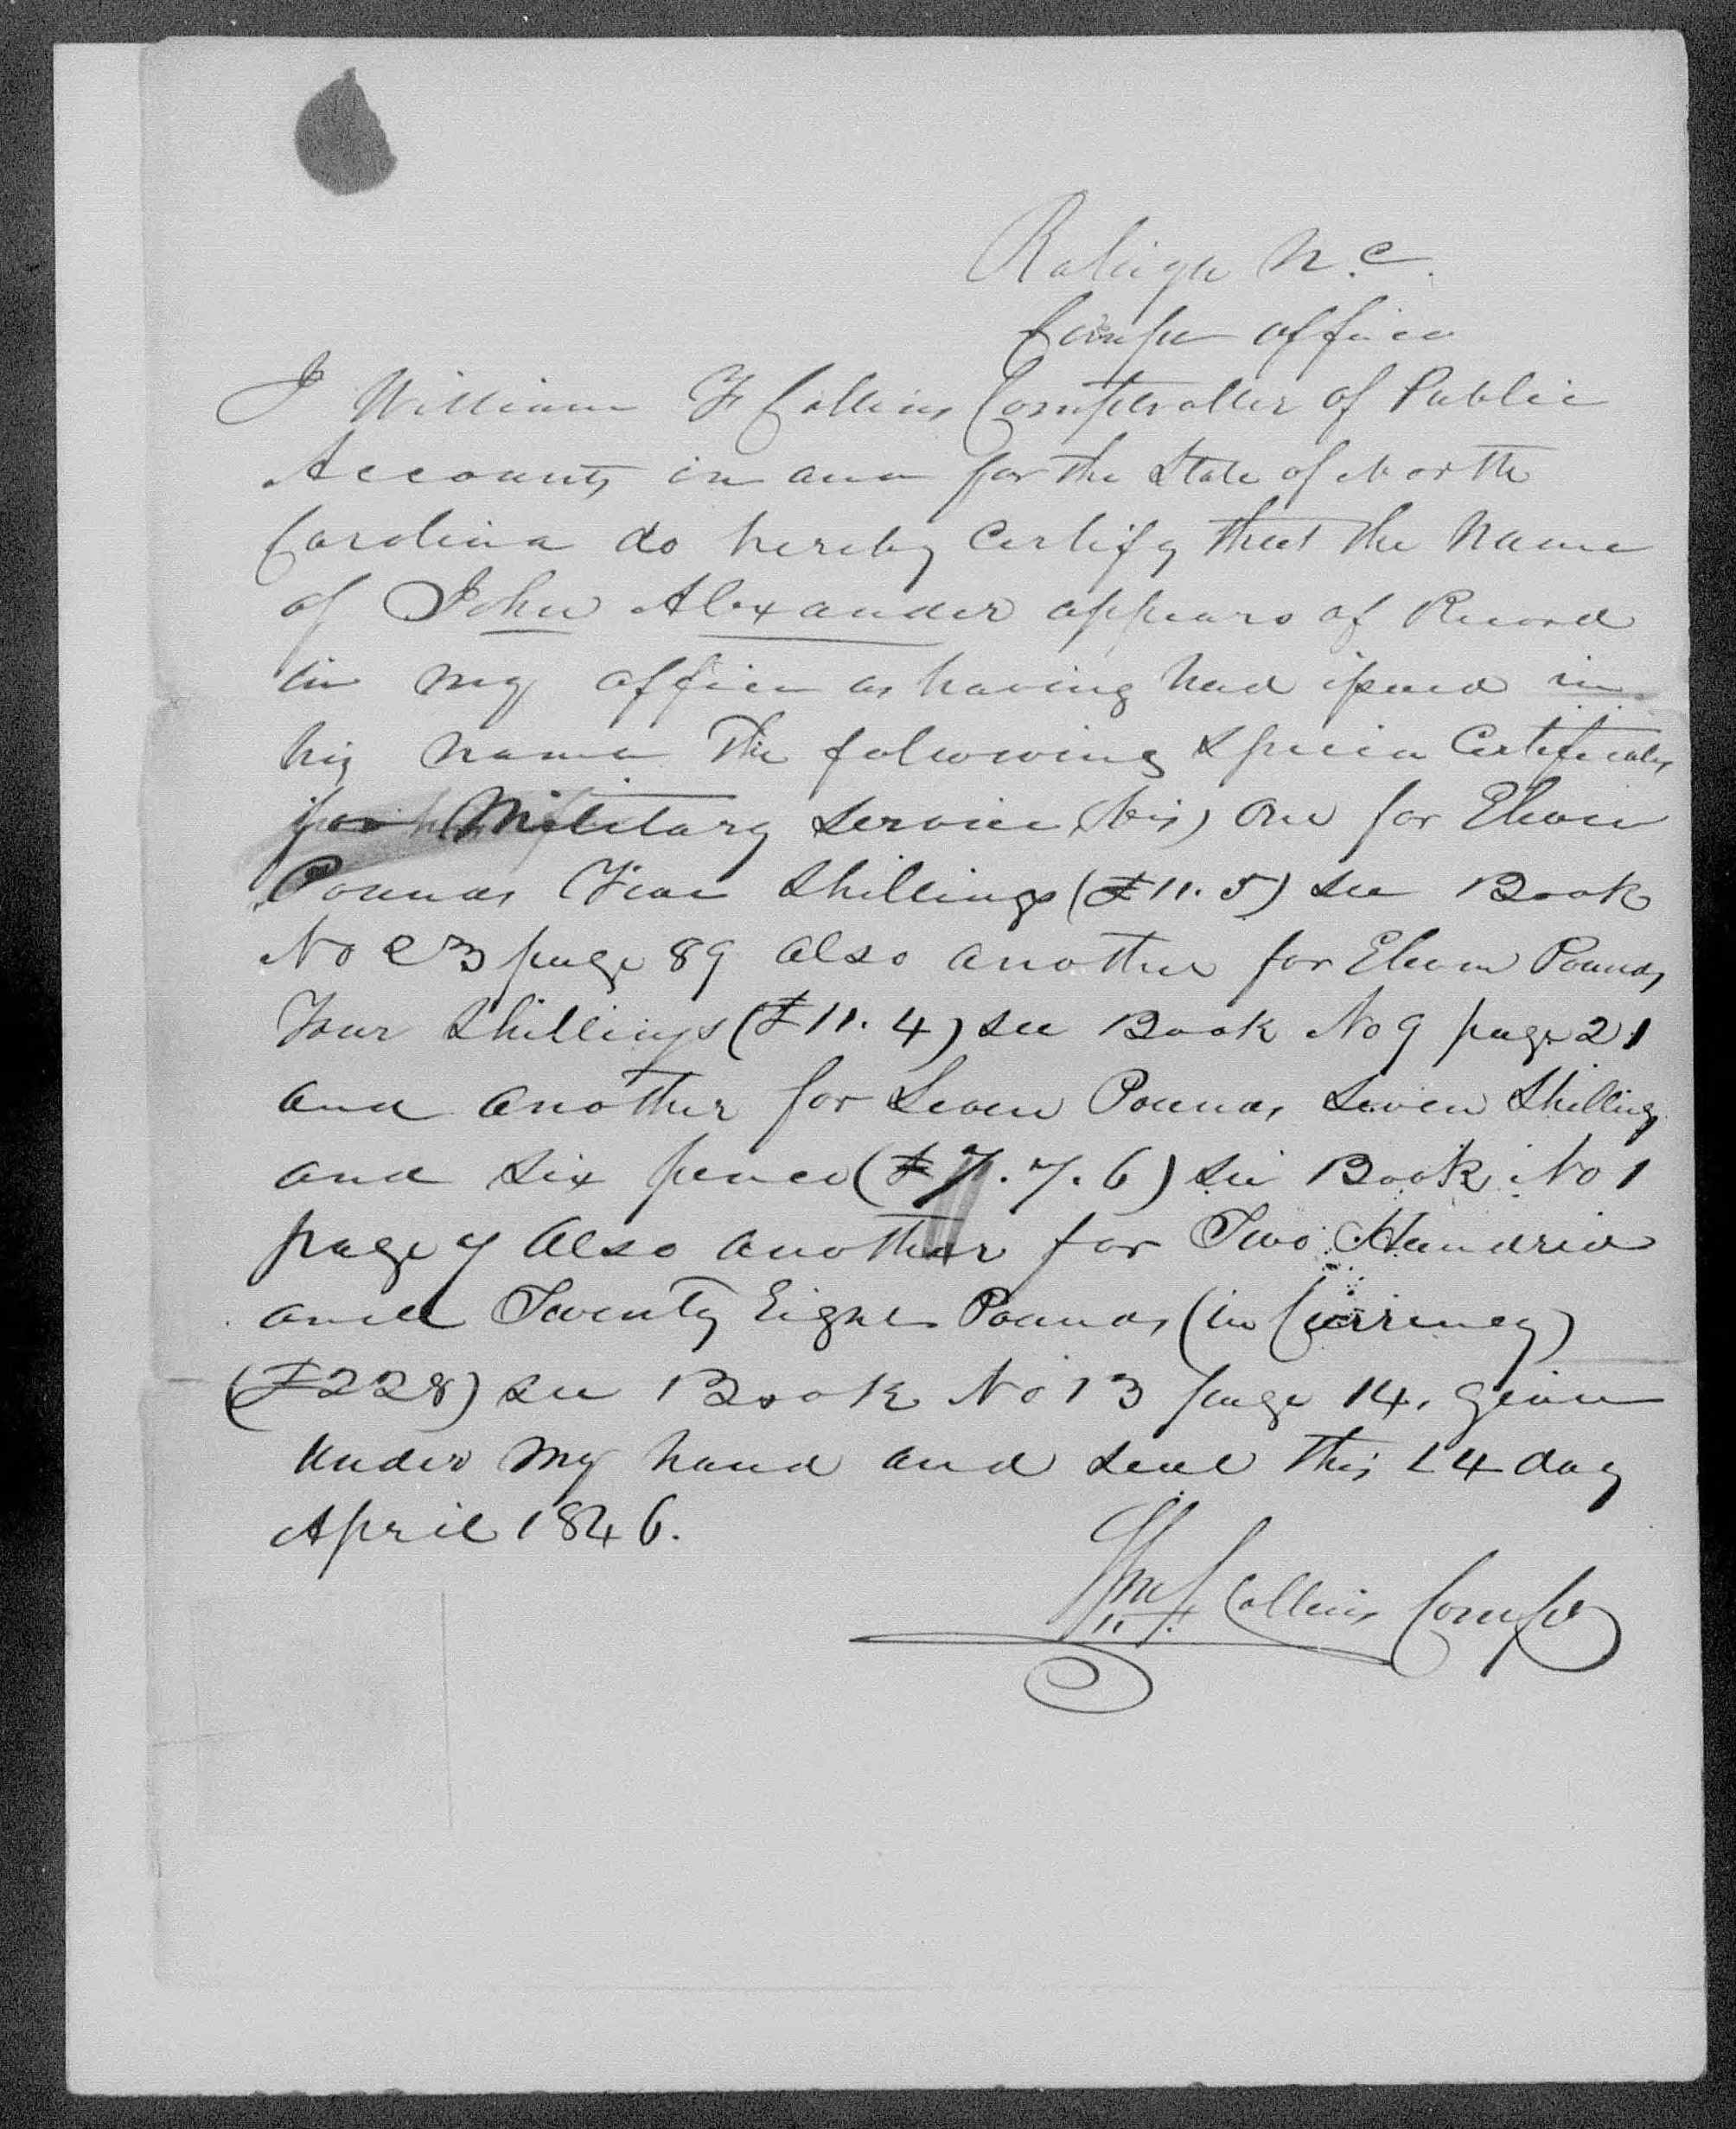 Raleigh N.C.
Comps office
I William F Collins Comptroller of Public
Accounts in and for the State of North
Carolina do hereby certify that the Name
of John Alexander appears of Record
in my office as having had issued in
his name The following Specia Certificates
for Military Service (viz) One for Eleven
Pounds Five Shillings (£11.5) See Book
No 23 page 89 also another for Eleven Pounds
Four Shillings (£11.4) see Book No 9 page 21
and another for Seven Pounds Seven Shillings
and six pence (£7.7.6) see Book No 1
page 7 also another for Two Hundred
and Twenty Eight Pounds (in Currency)
(£228) see Book No 13 page 14. given
under my hand and seal this 14 day
April 1846.
Wm F. Collins Comp